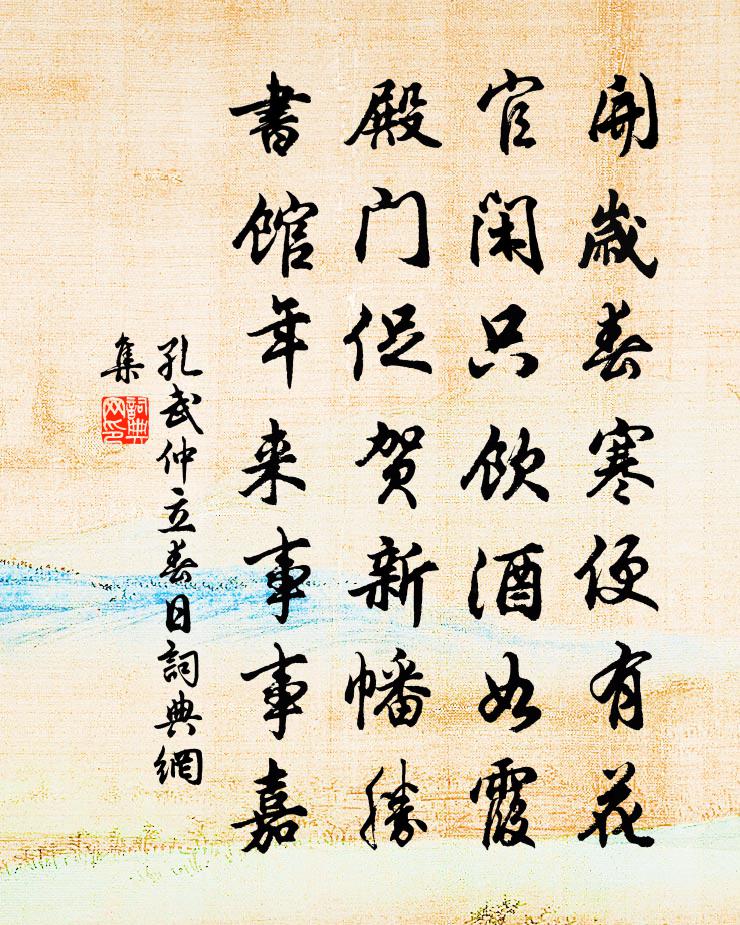 開歲春寒便有花
官閑只飲酒如霞
殿门促贺新幡勝
書馆年来事事嘉
孔武仲立春日詞典網
集
詞典
网印